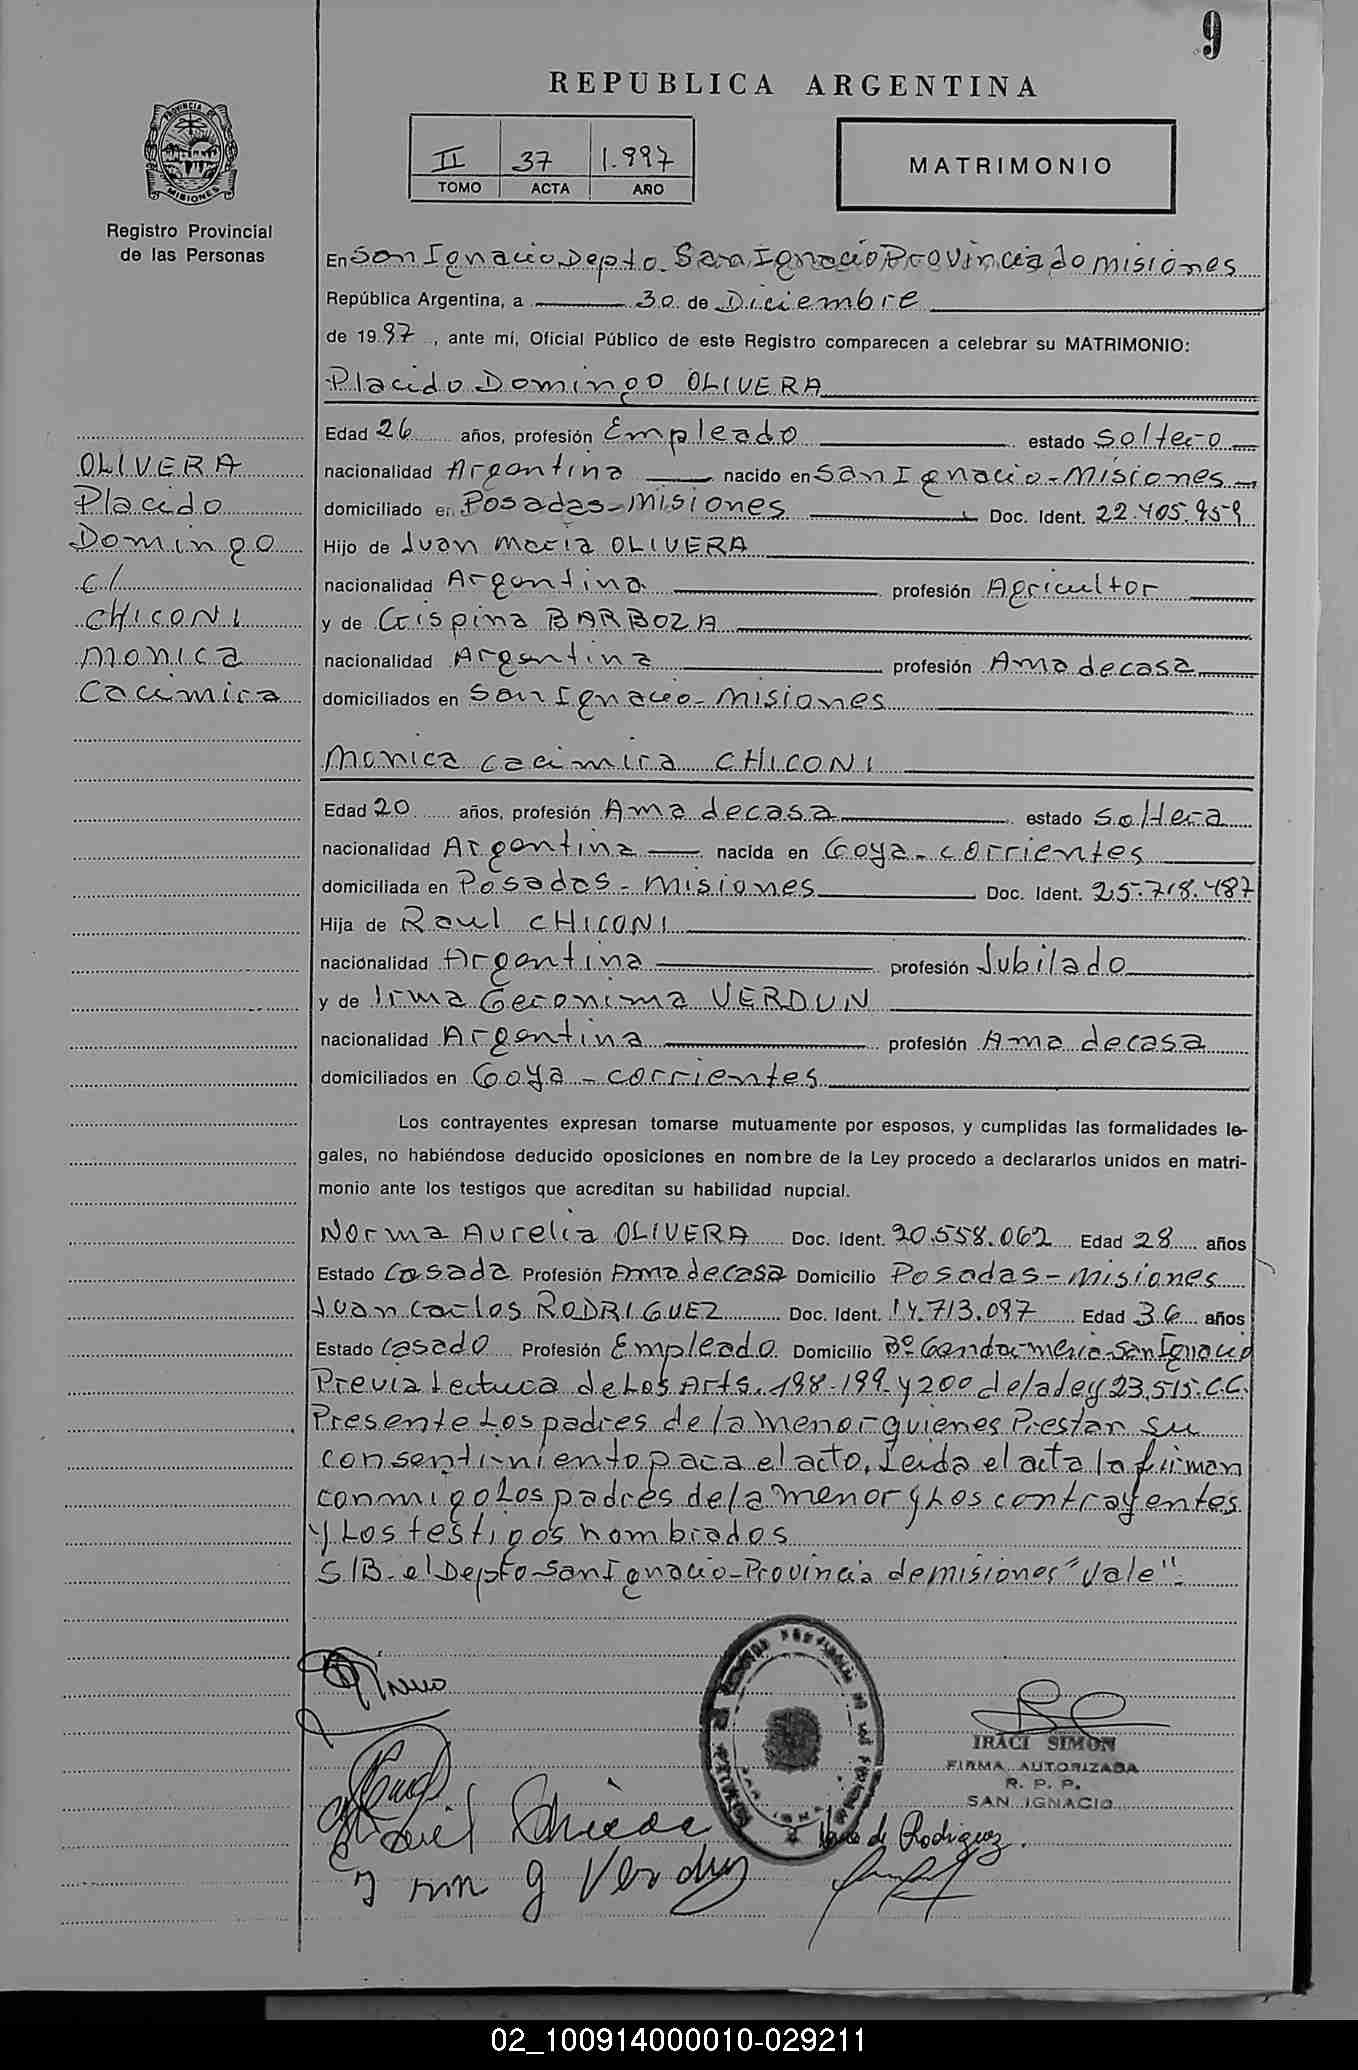 9
REPUBLICA ARGENTINA
II 37 1.997
TOMO ACTA AÑO
MATRIMONIO
PROVINCIA DE MISIONES
Registro Provincial
de las Personas
En San Ignacio Depto. San Ignacio Provincia do misiones
República Argentina, a 30 de Diciembre
de 1997, ante mí, Oficial Público de este Registro comparecen a celebrar su MATRIMONIO:
Placido Domingo OLIVERA
Edad 26 años, profesión Empleado estado Soltero
nacionalidad Argentina nacido en San Ignacio - Misiones
domiciliado en Posadas - Misiones Doc. Ident. 22.405.959
Hijo de Juan Maria OLIVERA
nacionalidad Argentina profesión Agricultor
y de Crispina BARBOZA
nacionalidad Argentina profesión Ama de casa
domiciliados en San Ignacio - Misiones
OLIVERA
Placido
Domingo
c/
CHICONI
Monica
Cacimira
Monica Cacimira CHICONI
Edad 20 años, profesión Ama de casa estado Soltera
nacionalidad Argentina nacida en Goya - Corrientes
domiciliada en Posadas - Misiones Doc. Ident. 25.718.487
Hija de Raul CHICONI
nacionalidad Argentina profesión Jubilado
y de Irma Geronima VERDUN
nacionalidad Argentina profesión Ama de casa
domiciliados en Goya - Corrientes
Los contrayentes expresan tomarse mutuamente por esposos, y cumplidas las formalidades le-
gales, no habiéndose deducido oposiciones en nombre de la Ley procedo a declararlos unidos en matri-
monio ante los testigos que acreditan su habilidad nupcial.
Norma Aurelia OLIVERA Doc. Ident. 20.558.062 Edad 28 años
Estado Casada Profesión Ama de casa Domicilio Posadas - Misiones
Juan Carlos RODRIGUEZ Doc. Ident. 14.713.097 Edad 36 años
Estado Casado Profesión Empleado Domicilio Bº Gendarmeria - San Ignacio
Previa Lectura de Los Arts. 198 - 199 - y 200 de la ley 23.515 - C.C.
Presente Los padres de la menor quienes Prestan su
consentimiento para el acto. Leida el acta la firman
conmigo Los padres de la menor y Los contrayentes
y Los testigos nombrados
S/B. el Depto - San Ignacio - Provincia de misiones "Vale".
IRACI SIMON
FIRMA AUTORIZADA
R. P. P.
SAN IGNACIO
de Rodriguez.
g Verdun
02_100914000010-029211